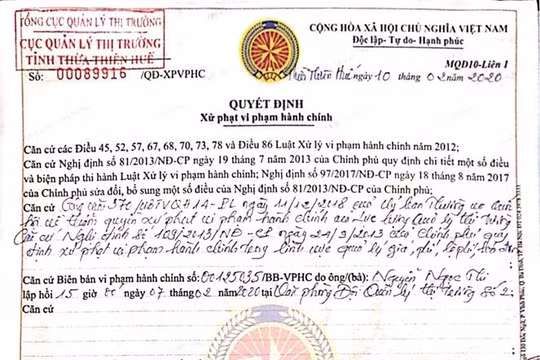 TỔNG CỤC QUẢN LÝ THỊ TRƯỜNG
CỤC QUẢN LÝ THỊ TRƯỜNG
TỈNH THỪA THIÊN HUẾ
Số: 00089916 /QĐ-XPVPHC
CỘNG HÒA XÃ HỘI CHỦ NGHĨA VIỆT NAM
Độc lập- Tự do- Hạnh phúc
MQĐ10-Liên 1
Thừa Thiên Huế, ngày 10 tháng 02 năm 2020
QUYẾT ĐỊNH
Xử phạt vi phạm hành chính
Căn cứ các Điều 45, 52, 57, 67, 68, 70, 73, 78 và Điều 86 Luật Xử lý vi phạm hành chính năm 2012;
Căn cứ Nghị định số 81/2013/NĐ-CP ngày 19 tháng 7 năm 2013 của Chính phủ quy định chi tiết một số điều
và biện pháp thi hành Luật Xử lý vi phạm hành chính; Nghị định số 97/2017/NĐ-CP ngày 18 tháng 8 năm
2017 của Chính phủ sửa đổi, bổ sung một số điều của Nghị định số 81/2013/NĐ-CP của Chính phủ;
Căn cứ Công văn 372/UBTVQH14-PL ngày 11/12/2018 của Ủy ban Thường vụ
về thẩm quyền xử phạt vi phạm hành chính của Lực lượng Quản lý thị trường
Căn cứ Nghị định số 109/2013/NĐ-CP ngày 24/9/2013 của Chính phủ quy
định xử phạt vi phạm hành chính trong lĩnh vực quản lý giá, phí, lệ phí, hóa đơn
Căn cứ Biên bản vi phạm hành chính số: 00125035/BB-VPHC do ông(bà): Nguyễn Ngọc Thi
lập hồi 15 giờ 00 ngày 07 tháng 02 năm 2020 tại Văn phòng Đội Quản lý thị trường số 2;
Căn cứ